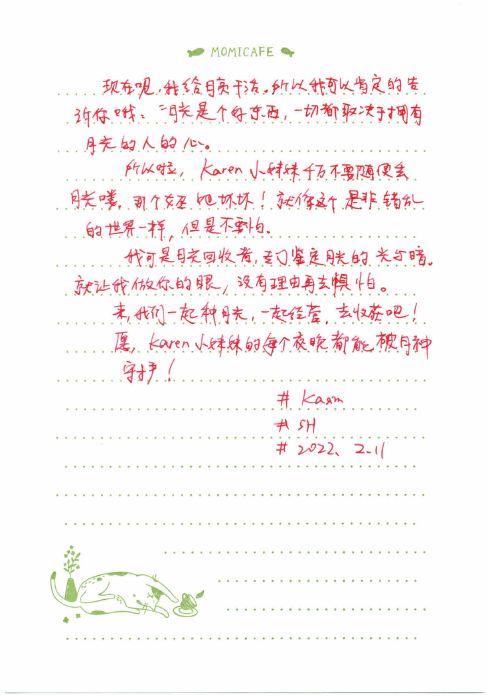 MOMICAFE
现在呢,我给月亮干活。所以我可以肯定的告
诉你哦:“月光是个好东西,一切都取决于拥有
月光的人的心。
所以啦,Karen小妹妹千万不要随便丢
月光喽。那个女巫她坏坏!就像这个是非错乱
的世界一样,但是不要怕。
我可是月光回收者,专门鉴定月光的光与暗。
就让我做你的眼,没有理由再去惧怕。
来,我们一起种月光,一起经营,去收获吧!
愿,Karen小妹妹的每个夜晚都能被月神
守护!
# Kaam
# SH
# 2022、2.11